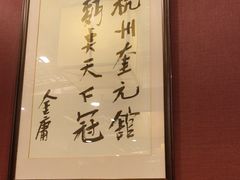 杭州奎元館
麵天下冠
金庸